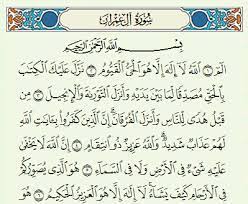 سُورَةُ آلِ عِمْرَانَ
بِسْمِ اللَّهِ الرَّحْمَٰنِ الرَّحِيمِ
الٓمٓ ١ اللَّهُ لَا إِلَٰهَ إِلَّا هُوَ الْحَيُّ الْقَيُّومُ ٢ نَزَّلَ عَلَيْكَ الْكِتَٰبَ
بِالْحَقِّ مُصَدِّقًا لِّمَا بَيْنَ يَدَيْهِ وَأَنزَلَ التَّوْرَىٰةَ وَالْإِنجِيلَ ٣ مِن
قَبْلُ هُدًى لِّلنَّاسِ وَأَنزَلَ الْفُرْقَانَ إِنَّ الَّذِينَ كَفَرُوا بِـَٔايَٰتِ اللَّهِ
لَهُمْ عَذَابٌ شَدِيدٌ وَاللَّهُ عَزِيزٌ ذُو انتِقَامٍ ٤ إِنَّ اللَّهَ لَا يَخْفَىٰ
عَلَيْهِ شَيْءٌ فِي الْأَرْضِ وَلَا فِي السَّمَاءِ ٥ هُوَ الَّذِي يُصَوِّرُكُمْ
فِي الْأَرْحَامِ كَيْفَ يَشَاءُ لَا إِلَٰهَ إِلَّا هُوَ الْعَزِيزُ الْحَكِيمُ ٦ هُوَ